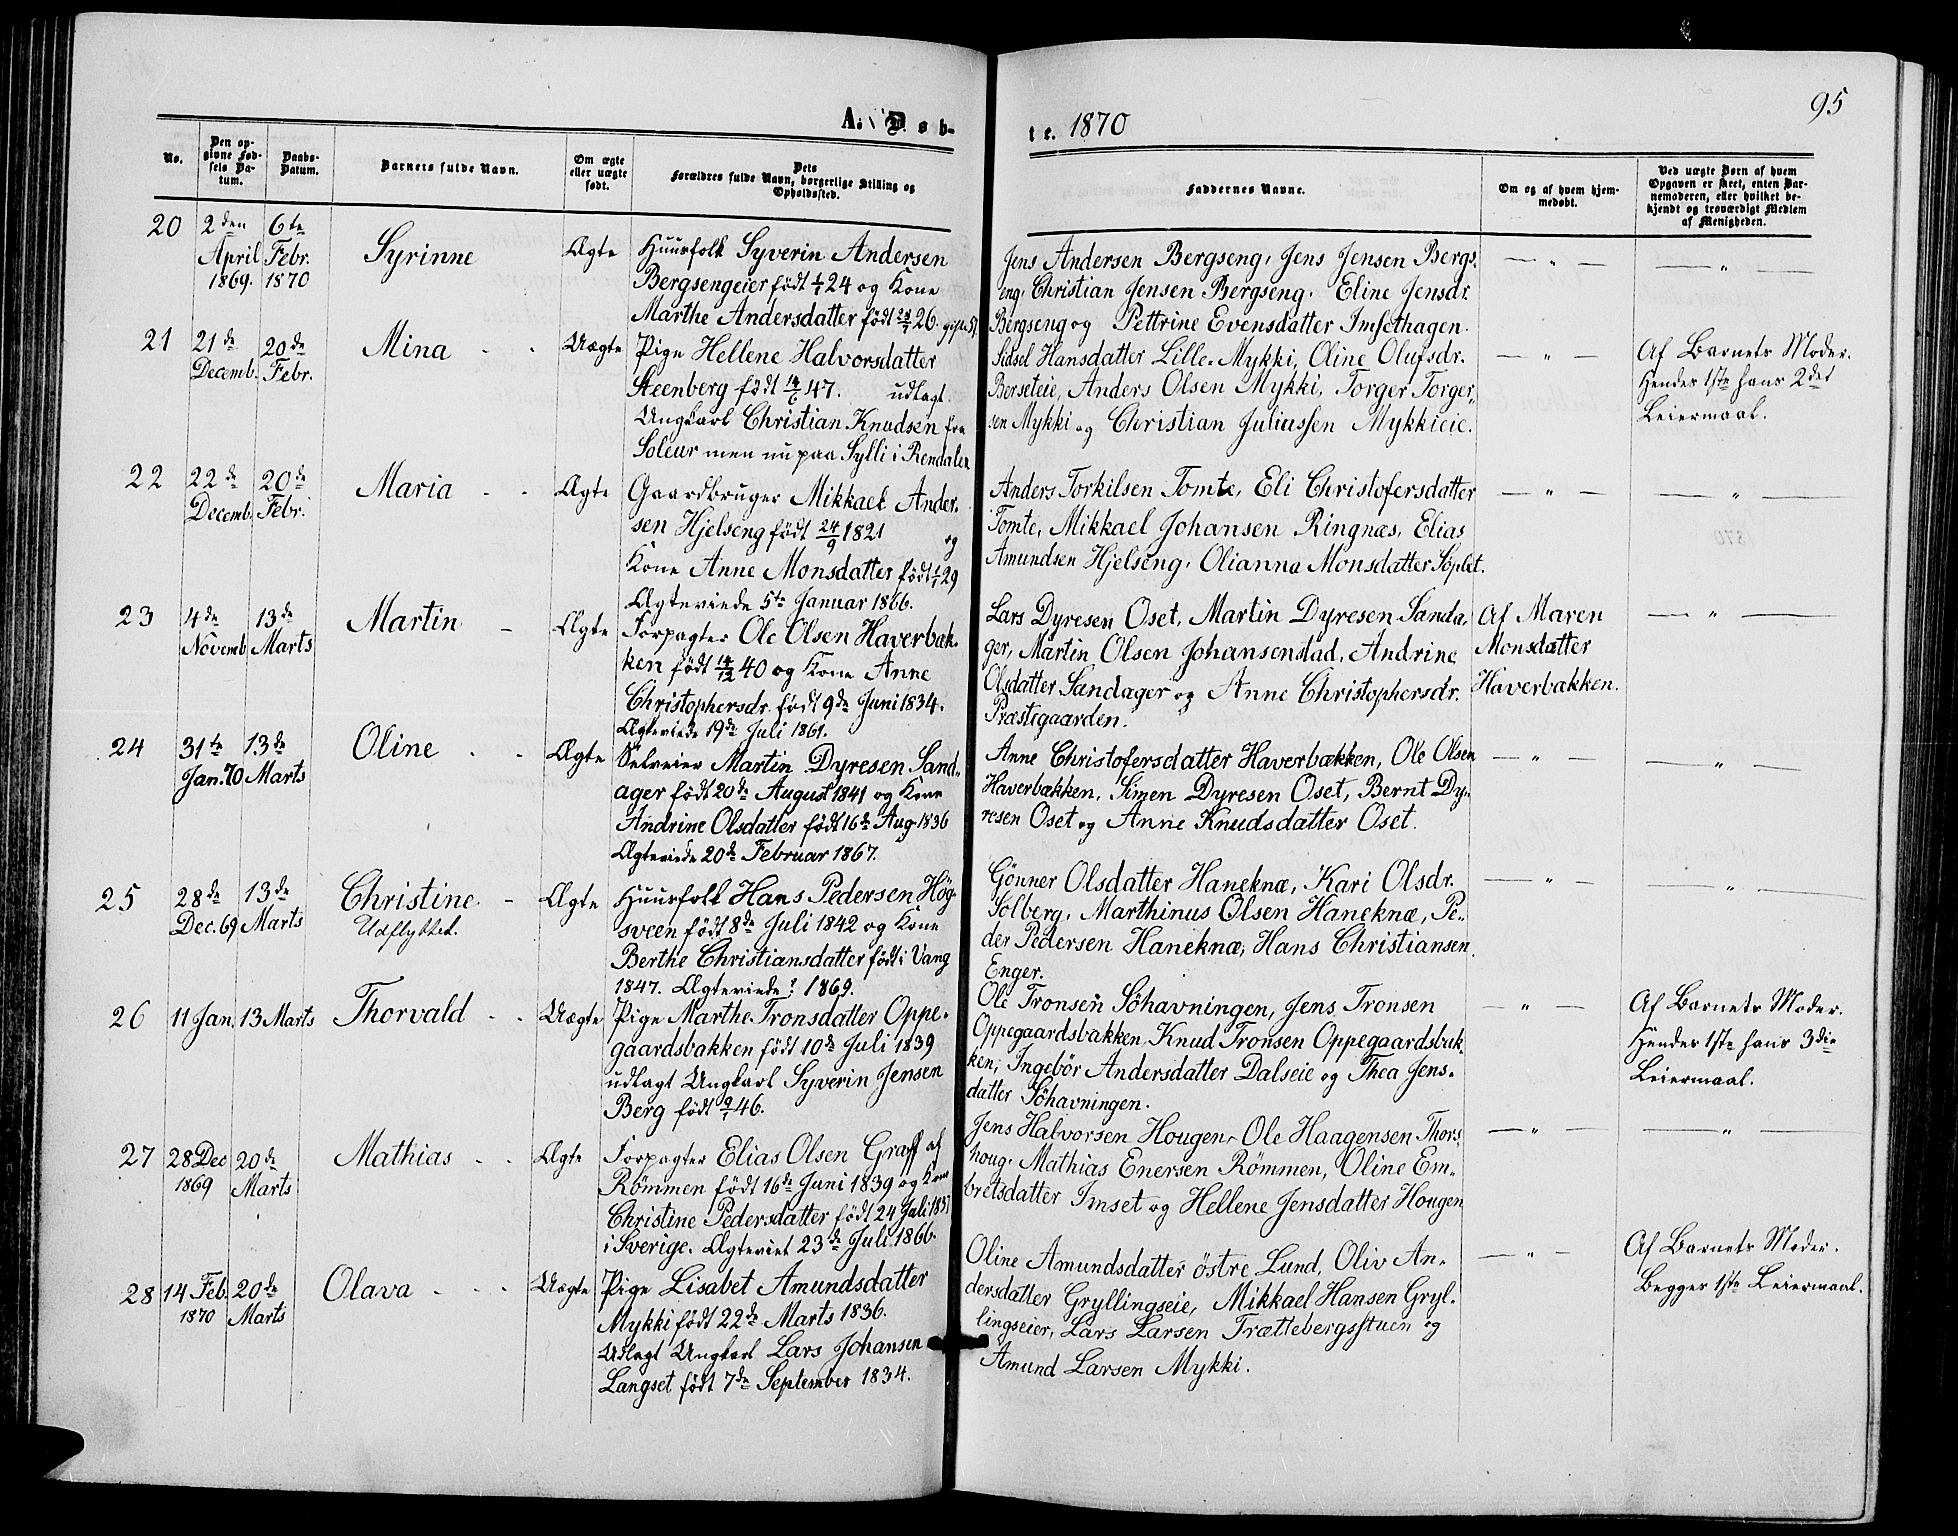 95
A. Døb-
te. 1870
No.
Den op-
givne Fød-
sels Da-
tum.
Daabs-
Datum.
Barnets fulde Navn.
Om ægte
eller uægte
født.
Dets
Forældres fulde Navn, borgerlige Stilling og
Opholdssted.
Faddernes Navne.
Om og af hvem hjem-
medøbt.
Ved uægte Børn af hvem
Opgaven er skeet, enten Bar-
nemoderen, eller hvilket be-
kjendt og troværdigt Medlem
af Menigheden.
20
2den
April
1869.
6te
Febr.
1870
Syrinne
Ægte
Huusfolk Syverin Andersen
Bergsengeier født 1/1 24 og Kone
Marthe Andersdatter født 26. gifte 51
Jens Andersen Bergseng, Jens Jensen Bergs.
eng, Christian Jensen Bergseng, Eline Jensdr.
Bergseng og Pettrine Evensdatter Imsethagen.
— " —
— " —
21
21de
Decemb.
20de
Febr.
Mina - -
Uægte
Pige Hellene Halvorsdatter
Steenberg født 14/6 47. udlagt.
Ungkarl Christian Knudsen fra
Soleur men nu paa Sylli i Rendalen
Sidsel Hansdatter Lille-Mykki, Oline Olufsdr.
Berseteie, Anders Olsen Mykki, Torger Torger-
sen Mykki og Christian Juliussen Mykkieie.
— " —
Af Barnets Moder.
Hendes 1ste hans 2det
Leiermaal.
22
22de
Decemb.
20de
Febr.
Maria - -
Ægte
Gaardbruger Mikkael Ander-
sen Hjelseng født 24/9 1821 og
Kone Anne Monsdatter født 1/1 29
Ægteviede 5te Januar 1866.
Anders Torkilsen Tomte, Eli Christofersdatter
Tomte, Mikkael Johansen Ringnæs, Elias
Amundsen Hjelseng, Olianna Monsdatter Söplet.
— " —
— " —
23
4de
Novemb
13de
Marts
Martin -
Ægte
Forpagter Ole Olsen Haverbak-
ken født 14/12 40 og Kone Anne
Christophersdr. født 9de Juni 1834.
Ægteviede 19de Juli 1861.
Lars Dyresen Oset, Martin Dyresen Sanda-
ger, Martin Olsen Johansenstad, Andrine
Olsdatter Sandager og Anne Christophersdr.
Præstegaarden.
Af Maren
Monsdatter
Haverbakken.
— " —
24
31te
Jan. 70
13de
Marts
Oline - -
Ægte
Selveier Martin Dyresen Sand-
ager født 20de August 1841 og Kone
Andrine Olsdatter født 16de Aug. 1836
Ægteviede 20de Februar 1867.
Anne Christofersdatter Haverbækken, Ole Olsen
Haverbækken, Simen Dyresen Oset, Bernt Dy-
resen Oset og Anne Knudsdatter Oset.
— " —
— " —
25
28de
Dec. 69
13de
Marts
Christine -
Udflyttet.
Ægte
Huusfolk Hans Pedersen Hög-
sveen født 8de Juli 1842 og Kone
Berthe Christiansdatter født i Vang
1847. Ægteviede ? 1869.
Gönner Olsdatter Haneknæ, Kari Olsdr.
Solberg, Marthinus Olsen Haneknæ, Pe-
der Pedersen Haneknæ, Hans Christiansen
Enger.
— " —
— " —
26
11 Jan.
13 Marts
Thorvald - -
Uægte
Pige Marthe Tronsdatter Oppe-
gaardsbakken født 10de Juli 1839
udlagt Ungkarl Syverin Jensen
Berg født 9/1 46.
Ole Tronsen Söhavningen, Jens Tronsen
Oppegaardsbakken, Knud Tronsen Oppegaardsbak-
ken, Ingebör Andersdatter Dalseie og Thea Jens-
datter Söhavningen.
— " —
Af Barnets Moder.
Hendes 1ste hans 3die
Leiermaal.
27
28 Dec
1869
20de
Marts
Mathias - -
Ægte
Forpagter Elias Olsen Graff af
Römmen født 16de Juni 1839 og Kone
Christine Pedersdatter født 24 Juli 1837
i Sverige. Ægteviet 23de Juli 1866.
Jens Halvorsen Hougen, Ole Haagensen Thors-
houg, Mathias Enersen Römmen, Oline Em-
bretsdatter Imset og Hellene Jensdatter Hougen
— " —
— " —
28
14 Feb.
1870
20de
Marts
Olava - - -
Uægte
Pige Lisabet Amundsdatter
Mykki født 22de Marts 1836.
Udlagt Ungkarl Lars Johansen
Langset født 7de September 1834.
Oline Amundsdatter östre Lund, Oliv An-
dersdatter Gryllingseie, Mikkael Hansen Gryl-
lingseier, Lars Larsen Trættebergsstuen og
Amund Larsen Mykki.
— " —
Af Barnets Moder.
Begges 1ste Leiermaal.